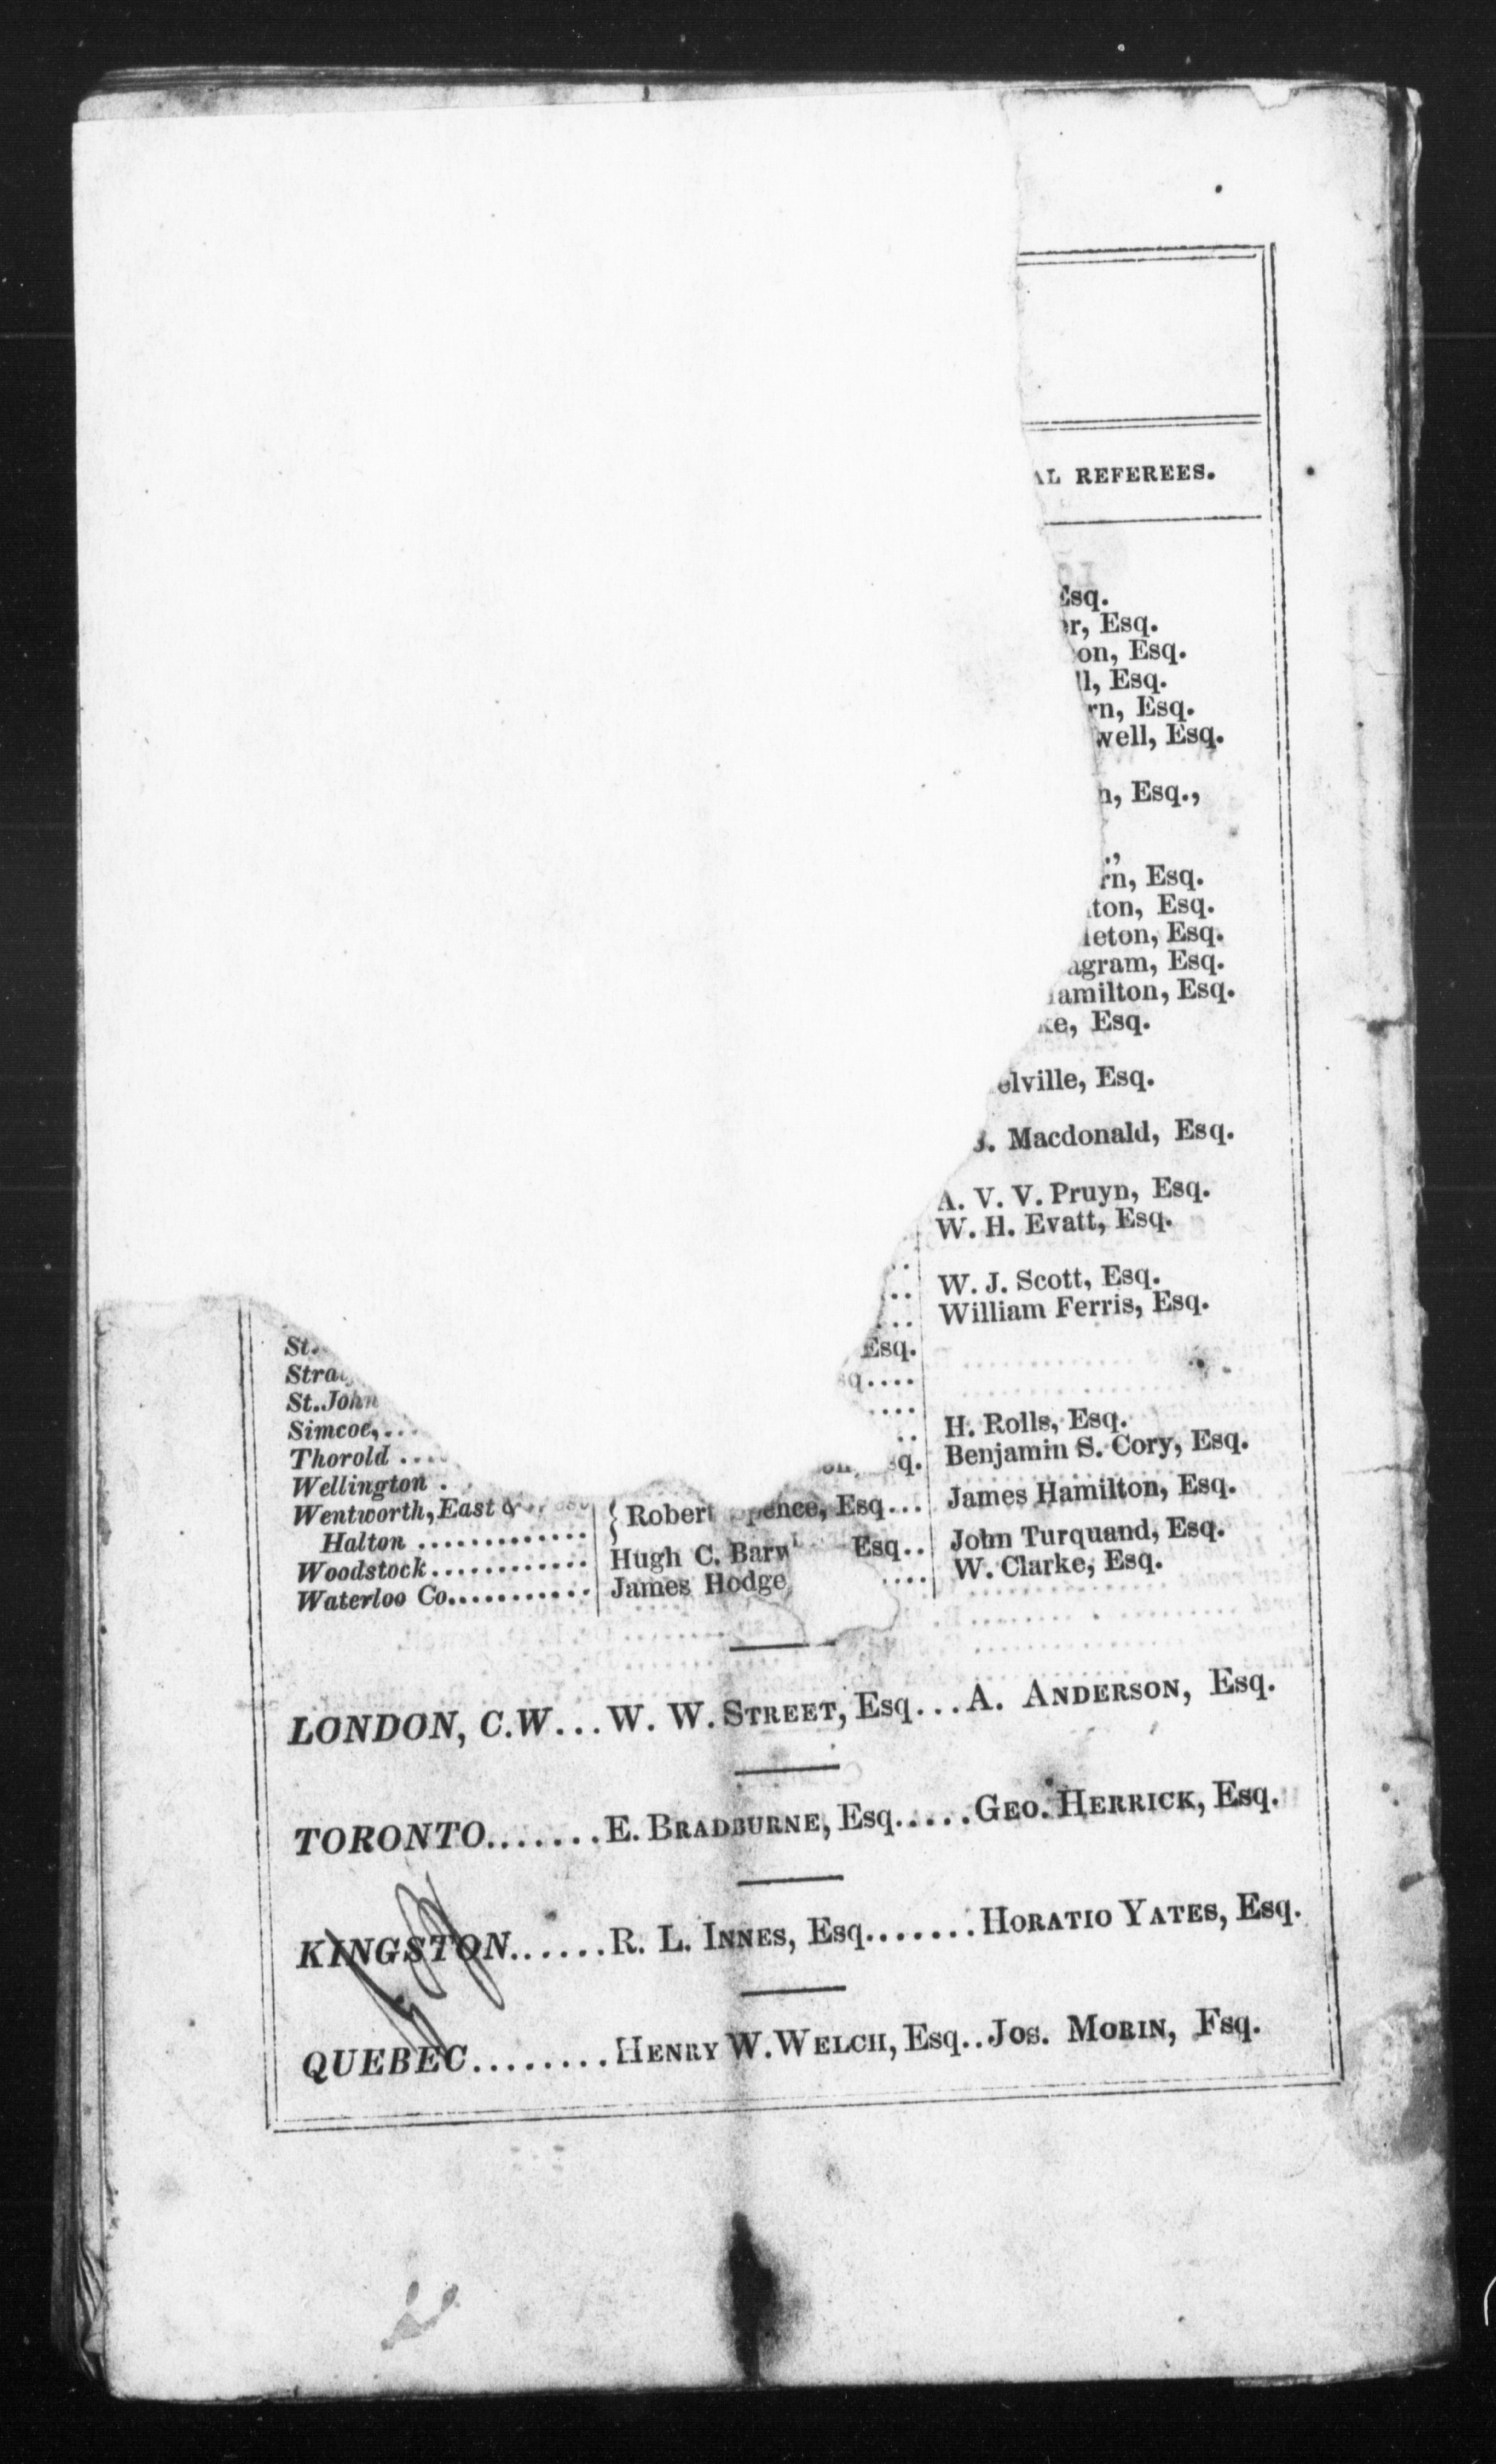 AL REFEREES.
Esq.
er, Esq.
on, Esq.
ll, Esq.
rn, Esq.
well, Esq.
n, Esq.,
.,
rn, Esq.
ton, Esq.
leton, Esq.
agram, Esq.
amilton, Esq.
ke, Esq.
elville, Esq.
. Macdonald, Esq.
A. V. V. Pruyn, Esq.
W. H. Evatt, Esq.
.. W. J. Scott, Esq.
... William Ferris, Esq.
St. Esq. ............
Stra sq.... ............
St. John ....
Simcoe,... .. H. Rolls, Esq.
Thorold .... sq. Benjamin S. Cory, Esq.
Wellington .
Wentworth, East & { Robert Spence, Esq... James Hamilton, Esq.
Halton .............
Woodstock............ Hugh C. Barw Esq.. John Turquand, Esq.
Waterloo Co........... James Hodge .... W. Clarke, Esq.
LONDON, C.W...W. W. STREET, Esq...A. ANDERSON, Esq.
TORONTO.......E. BRADBURNE, Esq.....GEO. HERRICK, Esq.
KINGSTON......R. L. INNES, Esq.......HORATIO YATES, Esq.
QUEBEC........HENRY W. WELCH, Esq..JOS. MORIN, Esq.